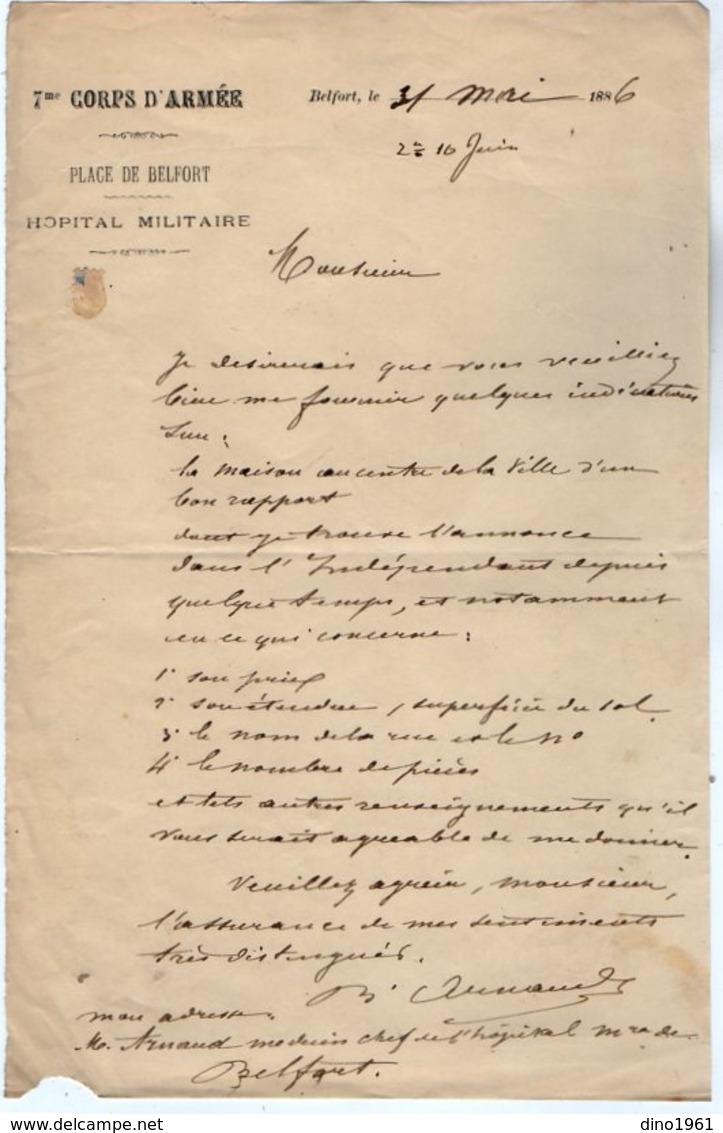 7me CORPS D'ARMÉE
PLACE DE BELFORT
HOPITAL MILITAIRE
Belfort, le 31 Mai 1886
10 Juin
Monsieur
Je desirerais que vous veuilliez
bien me fournir quelques indications
sur:
la maison au centre de la Ville d'un
bon rapport
dont je trouve l'annonce
dans l'Indépendant depuis
quelque temps, et notamment
en ce qui concerne:
1° son prix
2° son étendue, superficie du sol.
3° le nom de la rue et le N°
4° le nombre de pièces
et tels autres renseignements qu'il
vous serait agreable de me donner.
Veuillez agréer, monsieur,
l'assurance de mes sentiments
très distingués.
Arnaud
mon adresse.
M. Arnaud medecin chef de l'hôpital mre de
Belfort.
dino1961